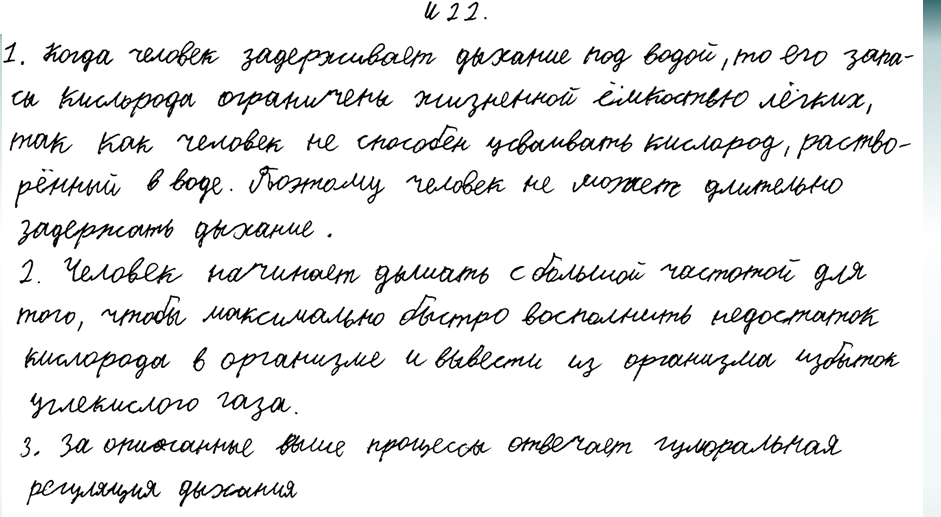 и 22.
1. Когда человек задерживает дыхание под водой, то его запа-
сы кислорода ограничены жизненной ёмкостью лёгких,
так как человек не способен усваивать кислород, раство-
рённый в воде. Поэтому человек не может длительно
задержать дыхание.
2. Человек начинает дышать с большой частотой для
того, чтобы максимально быстро восполнить недостаток
кислорода в организме и вывести из организма избыток
углекислого газа.
3. За описанные выше процессы отвечает гуморальная
регуляция дыхания